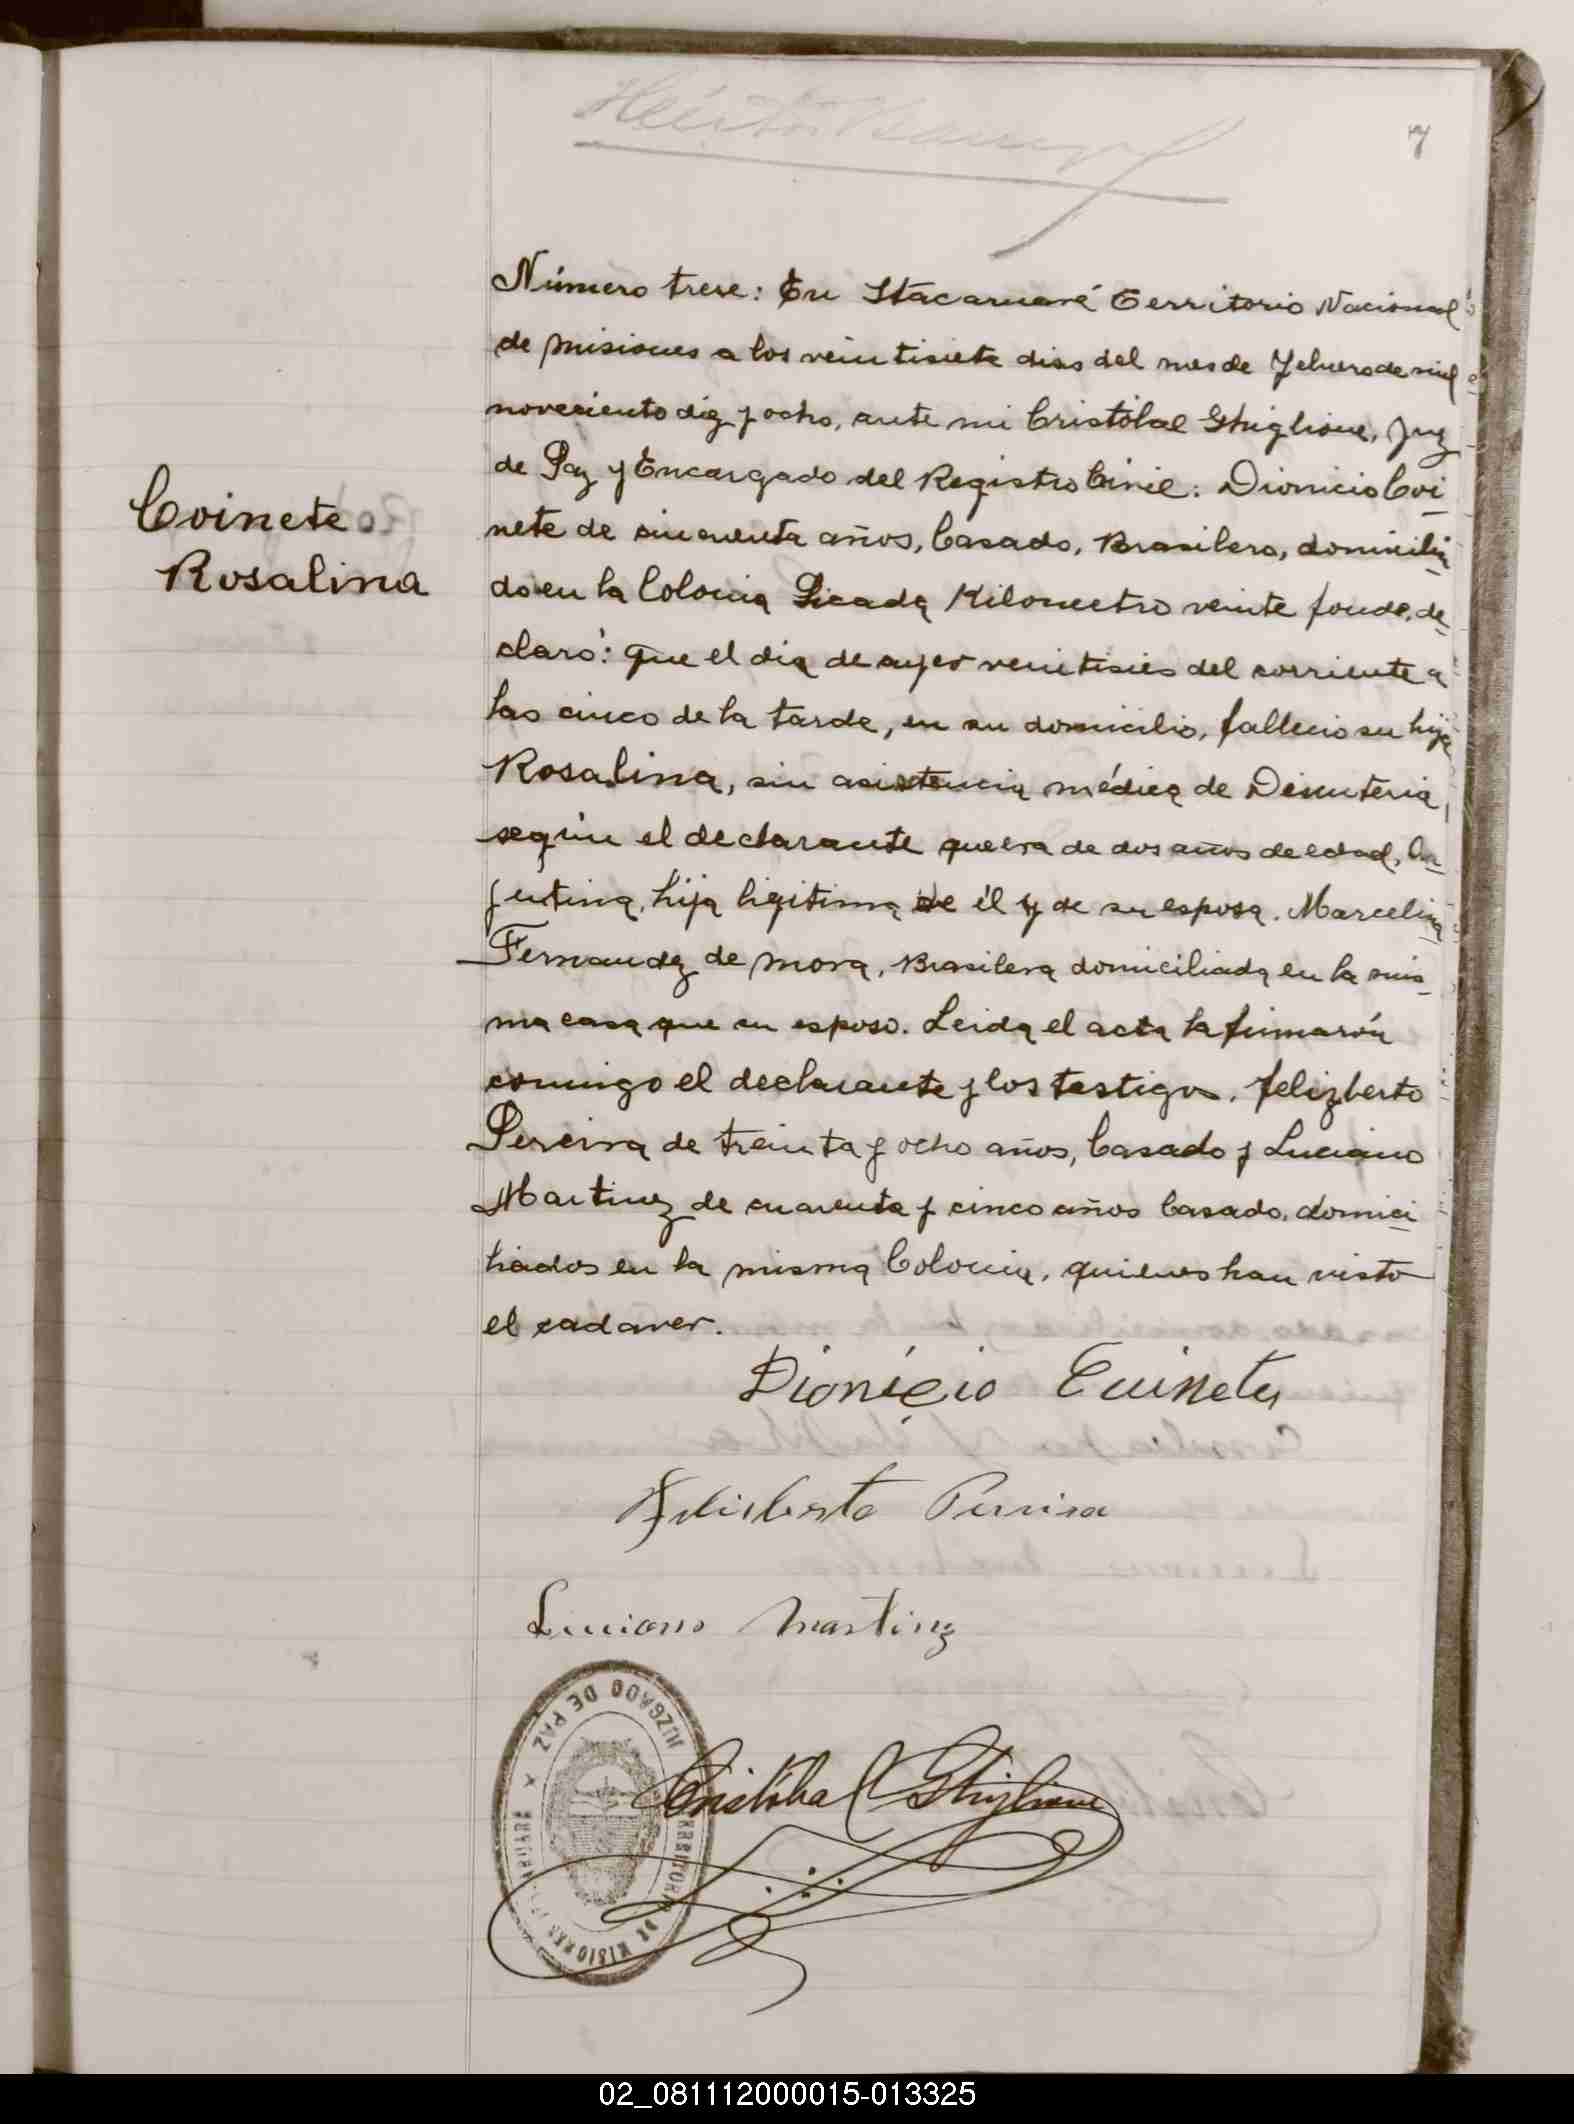 7
Número trese: En Itacaruaré Territorio Nacional
de misiones a los veintisiete dias del mes de Febrero de mil
noveciento diez y ocho, ante mi Cristóbal Ghiglione, Juez
de Paz y Encargado del Registro Civil: Dionicio Coi-
nete de sincuenta años, Casado, Brasilero, domicilia-
do en la Colonia Picada Kilometro veinte fondo, de-
claró: que el dia de ayer veintisies del corriente a
las cinco de la tarde, en su domicilio, fallecio su hija
Coinete
Rosalina
Rosalina, sin asistencia médica de Disenteria,
según el declarante que era de dos años de edad, Ar-
jentina, hija ligitima de él y de su esposa. Marcelina
Fernandez de Mora, Brasilera domiciliada en la mis-
ma casa que su esposo. Leida el acta la firmarón
comigo el declarante y los testigos, Felizberto
Pereira de treinta y ocho años, Casado y Luciano
Martinez de cuarenta y cinco años Casado, domici-
liados en la misma Colonia, quienes han visto
el cadaver.
Dionizio Cuinete
Felisberto Pereira
Luciano Martinz
JUZGADO DE PAZ
TERRITORIO DE MISIONES
Cristóbal Ghiglione
02_081112000015-013325